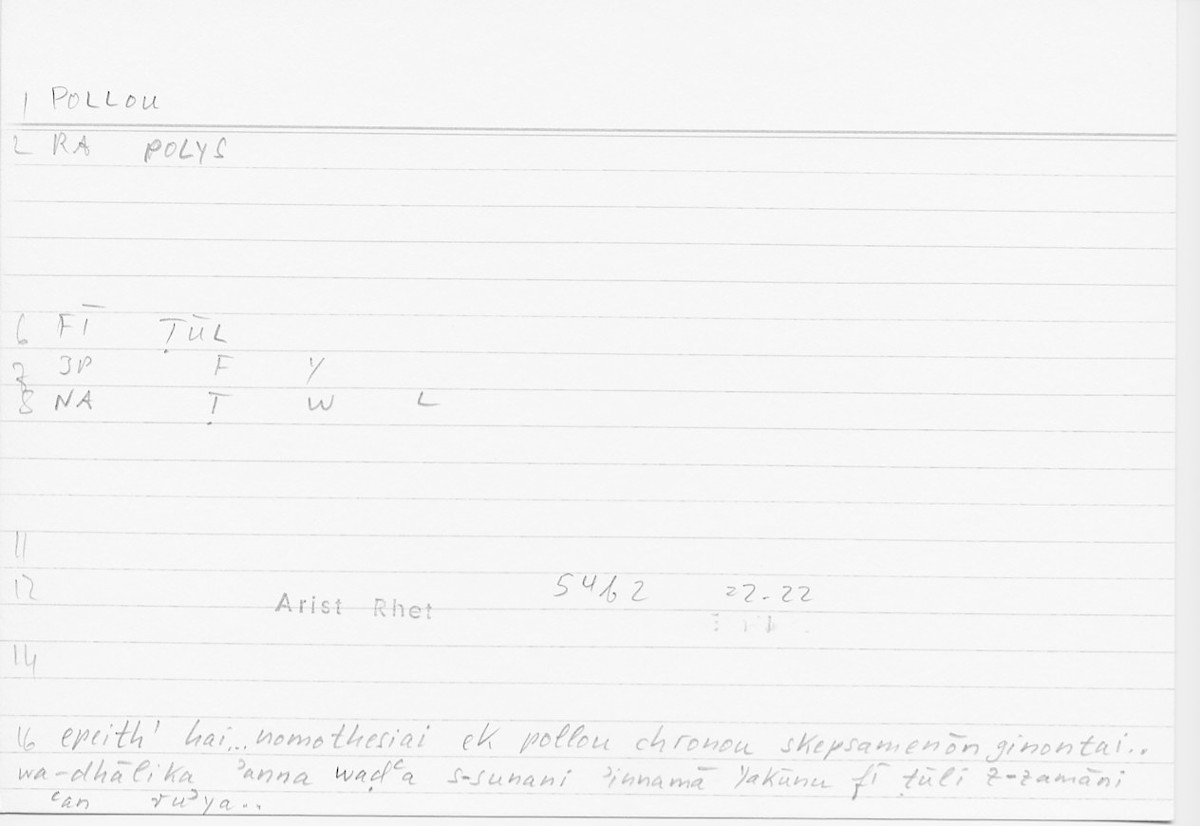 1 POLLOU
2 RA POLYS
6 FĪ ṬŪL
7 3P F Y
8 NA Ṭ W L
11
12 Arist Rhet 54b2 22.22
14
16 epeith' hai... nomothesiai ek pollou chronou skepsamenōn ginontai..
wa-dhālika ʾanna waḍʿa s-sunani ʾinnamā yakūnu fī ṭūli z-zamāni
ʿan ruʾya..